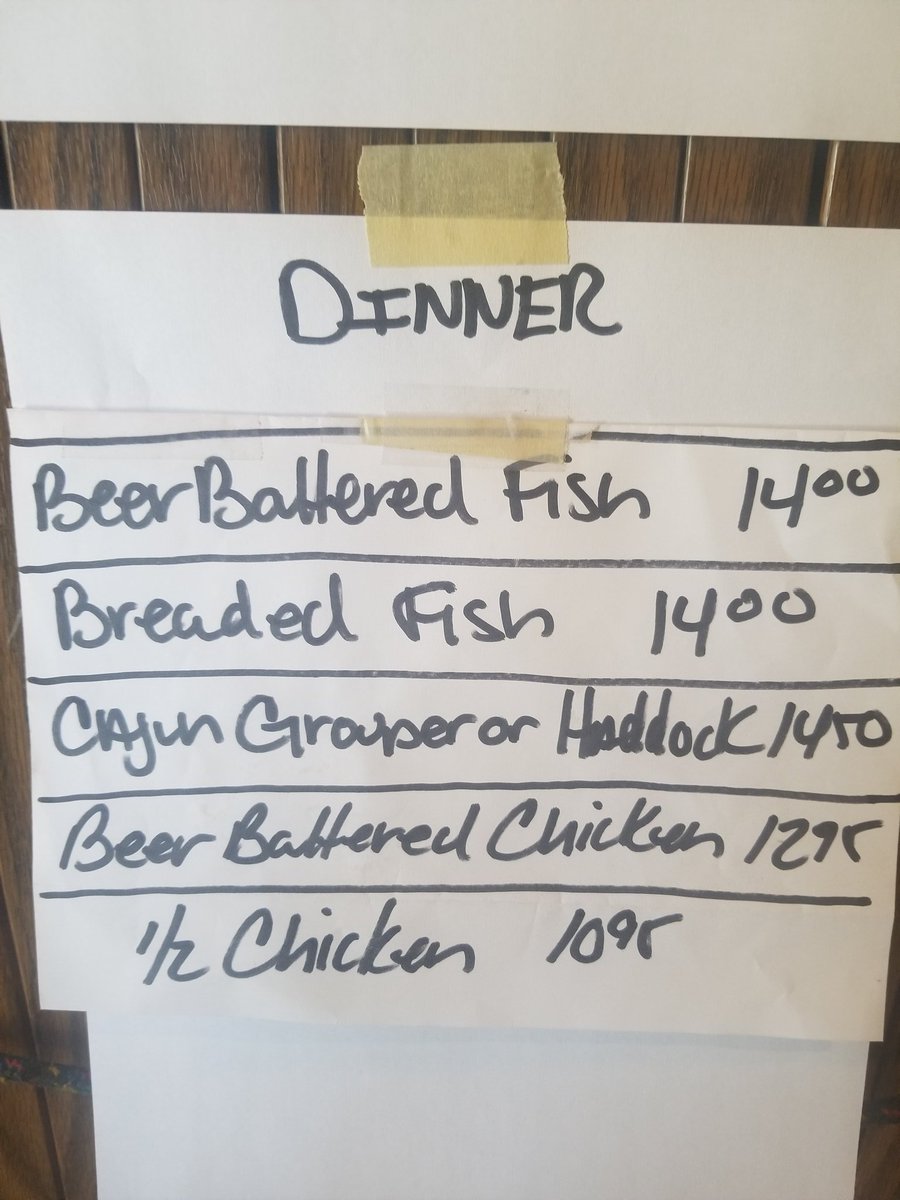 DINNER
Beer Battered Fish 1400
Breaded Fish 1400
Cajun Grouper or Haddock 1450
Beer Battered Chicken 1295
1/2 Chicken 1095